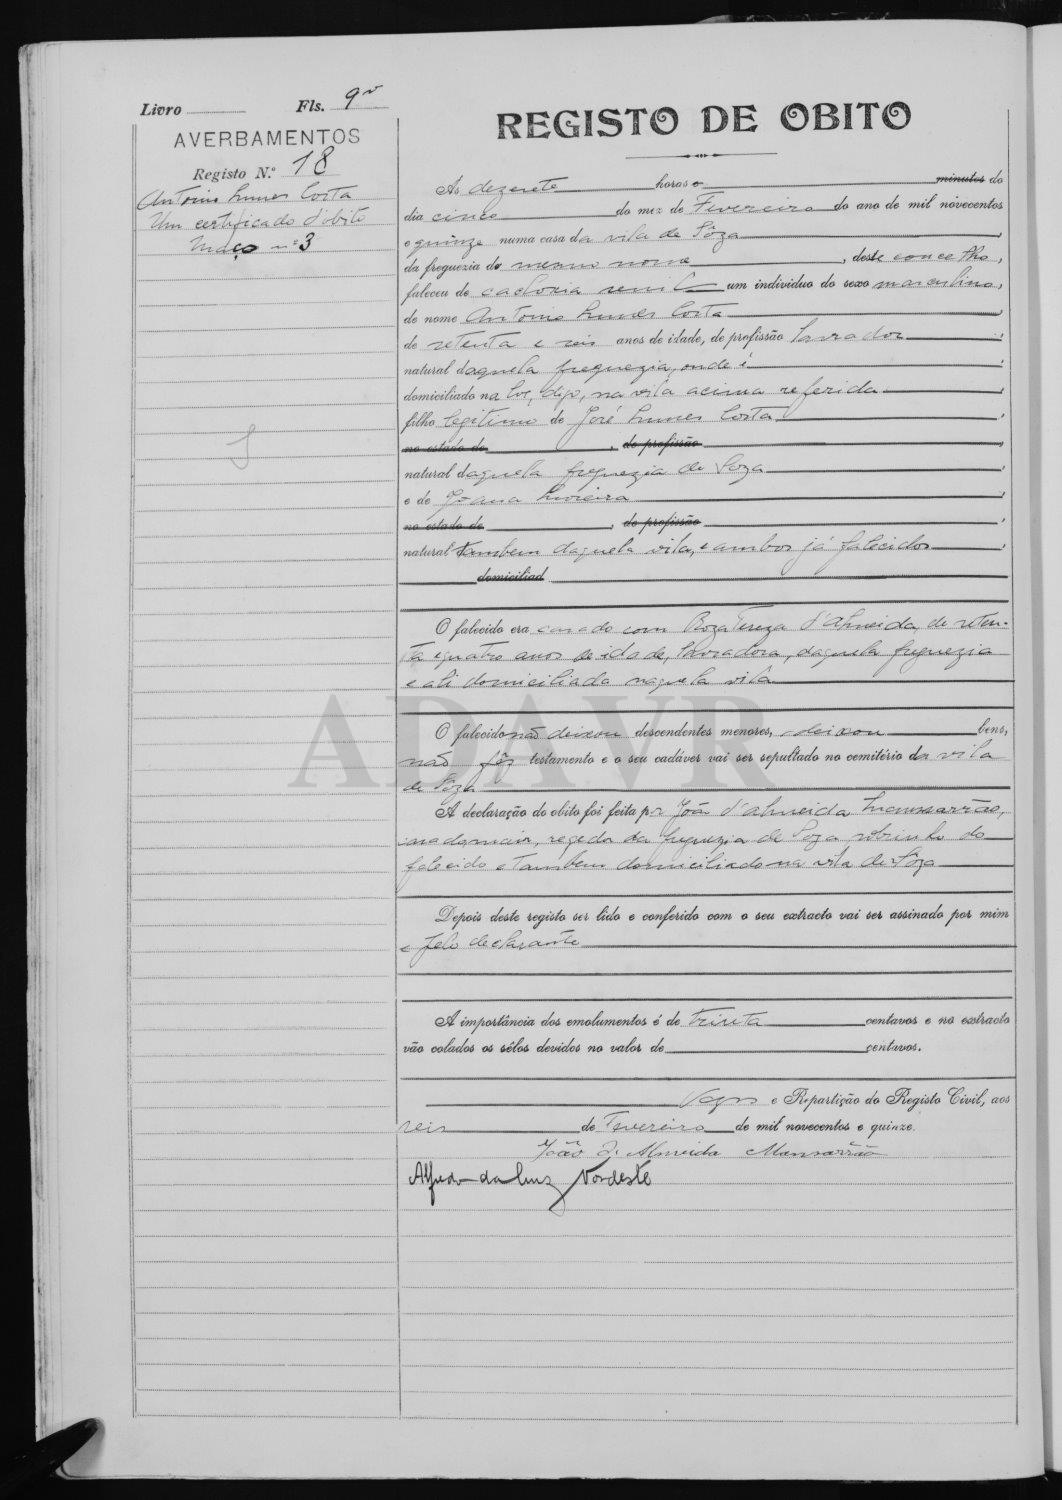 Livro Fls. 9v
REGISTO DE OBITO
AVERBAMENTOS
Registo N.º 18
Antonio Nunes Costa
Um certificado d'obito
Maço nº 3
As dezesete horas e minutos do
dia cinco do mez de Fevereiro do ano de mil novecentos
e quinze numa casa da vila de Sôza,
da freguezia do mesmo nome, deste concelho,
faleceu de cachexia senil um individuo do sexo masculino,
de nome Antonio Nunes Costa,
de setenta e seis anos de idade, de profissão lavrador,
natural daquela freguezia, onde é
domiciliado na digo, na vila acima referida
filho legitimo de José Nunes Costa,
no estado de, de profissão,
natural daquela freguezia de Soza,
e de Joana,
no estado de, de profissão,
natural tambem daquela vila, e ambos já falecidos,
domiciliad
O falecido era casado com Roza Tereza d'Almeida, de seten-
ta e quatro anos de idade, lavradora, daquela freguezia
e ali domiciliada naquela vila
ADAVR
O falecido não deixou descendentes menores, deixou bens,
não fêz testamento e o seu cadáver vai ser sepultado no cemitério da vila
de Sôza
A declaração do obito foi feita por João d'Almeida Mansarrão,
regedor da freguezia de Soza sobrinho do
falecido e tambem domiciliado na vila de Sôza
Depois deste registo ser lido e conferido com o seu extracto vai ser assinado por mim
e pelo declarante
A importância dos emolumentos é de trinta centavos e no extracto
vão colados os sêlos devidos no valor de centavos.
Vagos e Repartição do Registo Civil, aos
seis de Fevereiro de mil novecentos e quinze.
João d'Almeida Mansarrão
Alfredo da Cruz Nordeste